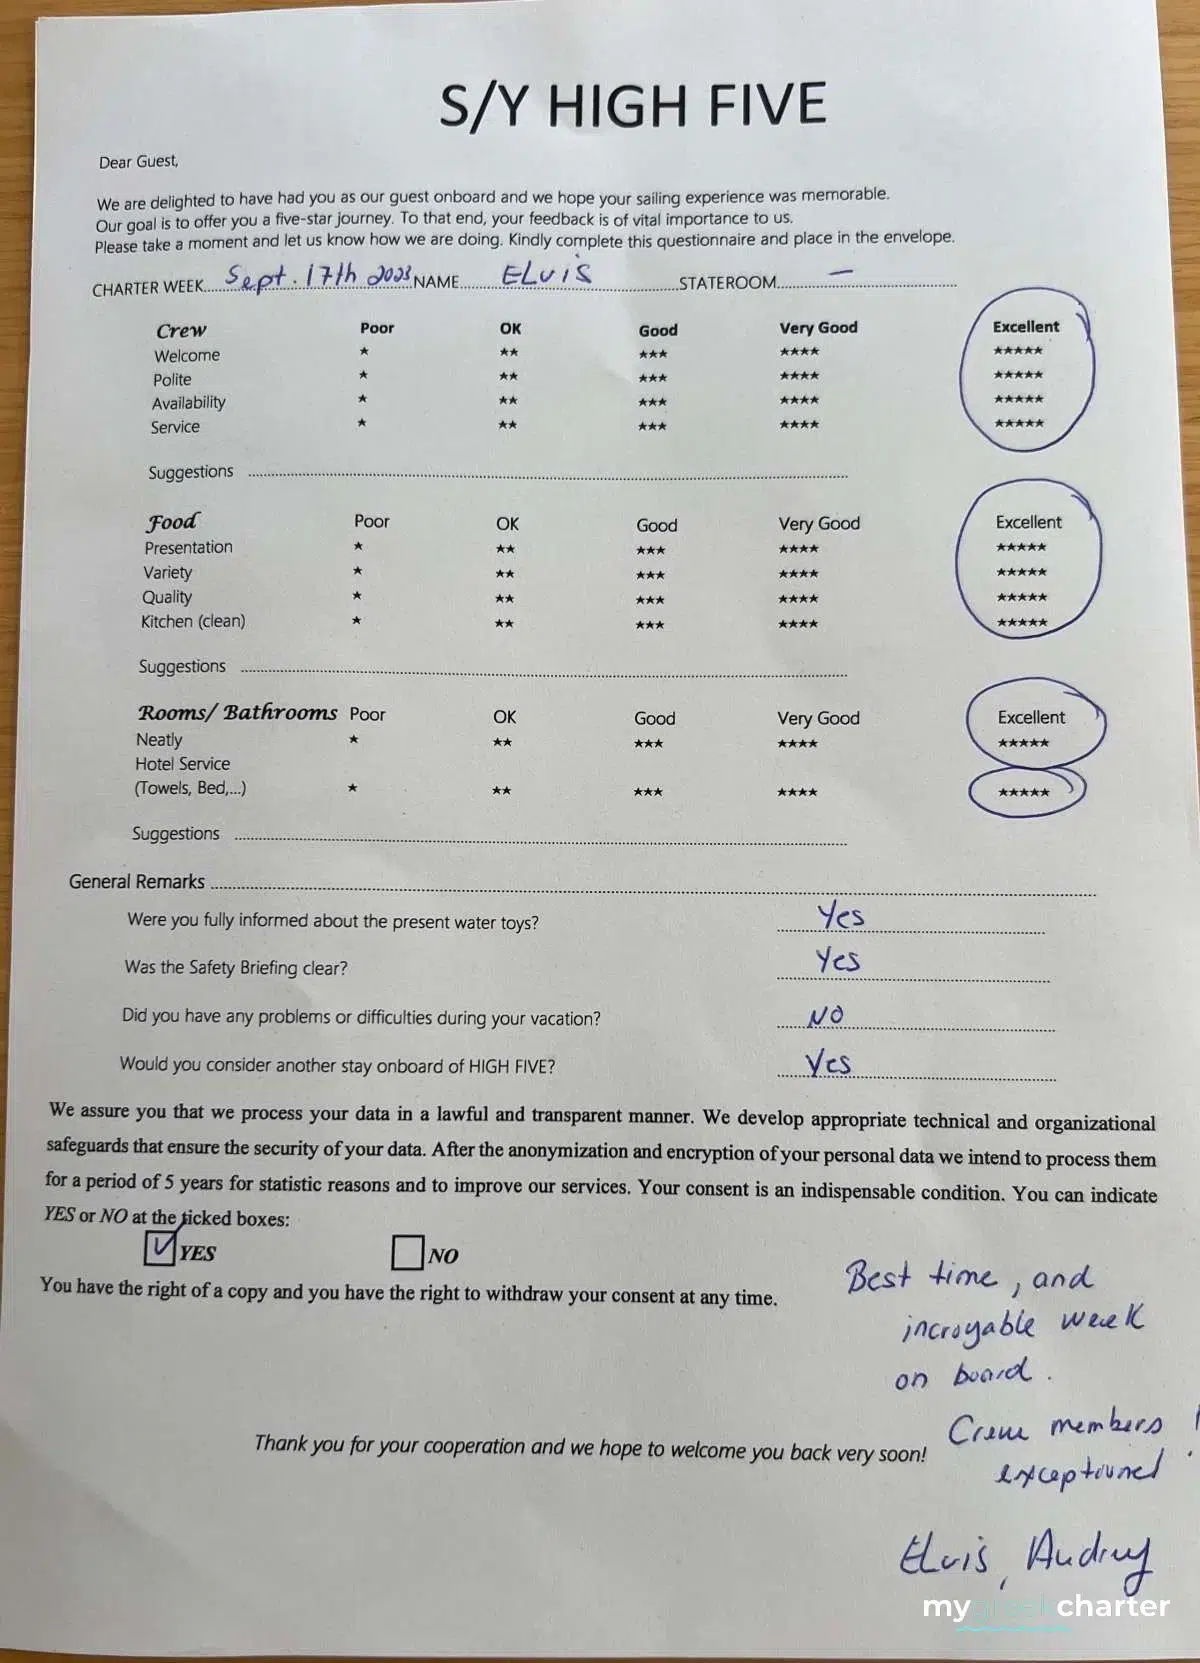 S/Y HIGH FIVE
Dear Guest,
We are delighted to have had you as our guest onboard and we hope your sailing experience was memorable.
Our goal is to offer you a five-star journey. To that end, your feedback is of vital importance to us.
Please take a moment and let us know how we are doing. Kindly complete this questionnaire and place in the envelope.
CHARTER WEEK Sept. 17th 2023 NAME ELvis STATEROOM —
Crew Poor OK Good Very Good Excellent
Welcome ★ ★★ ★★★ ★★★★ ★★★★★
Polite ★ ★★ ★★★ ★★★★ ★★★★★
Availability ★ ★★ ★★★ ★★★★ ★★★★★
Service ★ ★★ ★★★ ★★★★ ★★★★★
Suggestions
Food Poor OK Good Very Good Excellent
Presentation ★ ★★ ★★★ ★★★★ ★★★★★
Variety ★ ★★ ★★★ ★★★★ ★★★★★
Quality ★ ★★ ★★★ ★★★★ ★★★★★
Kitchen (clean) ★ ★★ ★★★ ★★★★ ★★★★★
Suggestions
Rooms/ Bathrooms Poor OK Good Very Good Excellent
Neatly ★ ★★ ★★★ ★★★★ ★★★★★
Hotel Service
(Towels, Bed,...) ★ ★★ ★★★ ★★★★ ★★★★★
Suggestions
General Remarks
Were you fully informed about the present water toys? Yes
Was the Safety Briefing clear? Yes
Did you have any problems or difficulties during your vacation? NO
Would you consider another stay onboard of HIGH FIVE? Yes
We assure you that we process your data in a lawful and transparent manner. We develop appropriate technical and organizational
safeguards that ensure the security of your data. After the anonymization and encryption of your personal data we intend to process them
for a period of 5 years for statistic reasons and to improve our services. Your consent is an indispensable condition. You can indicate
YES or NO at the ticked boxes:
☑ YES ☐ NO
You have the right of a copy and you have the right to withdraw your consent at any time.
Best time, and
incroyable week
on board.
Thank you for your cooperation and we hope to welcome you back very soon!
Crew members !
exceptionnel
ELvis, Audrey
mygreekcharter